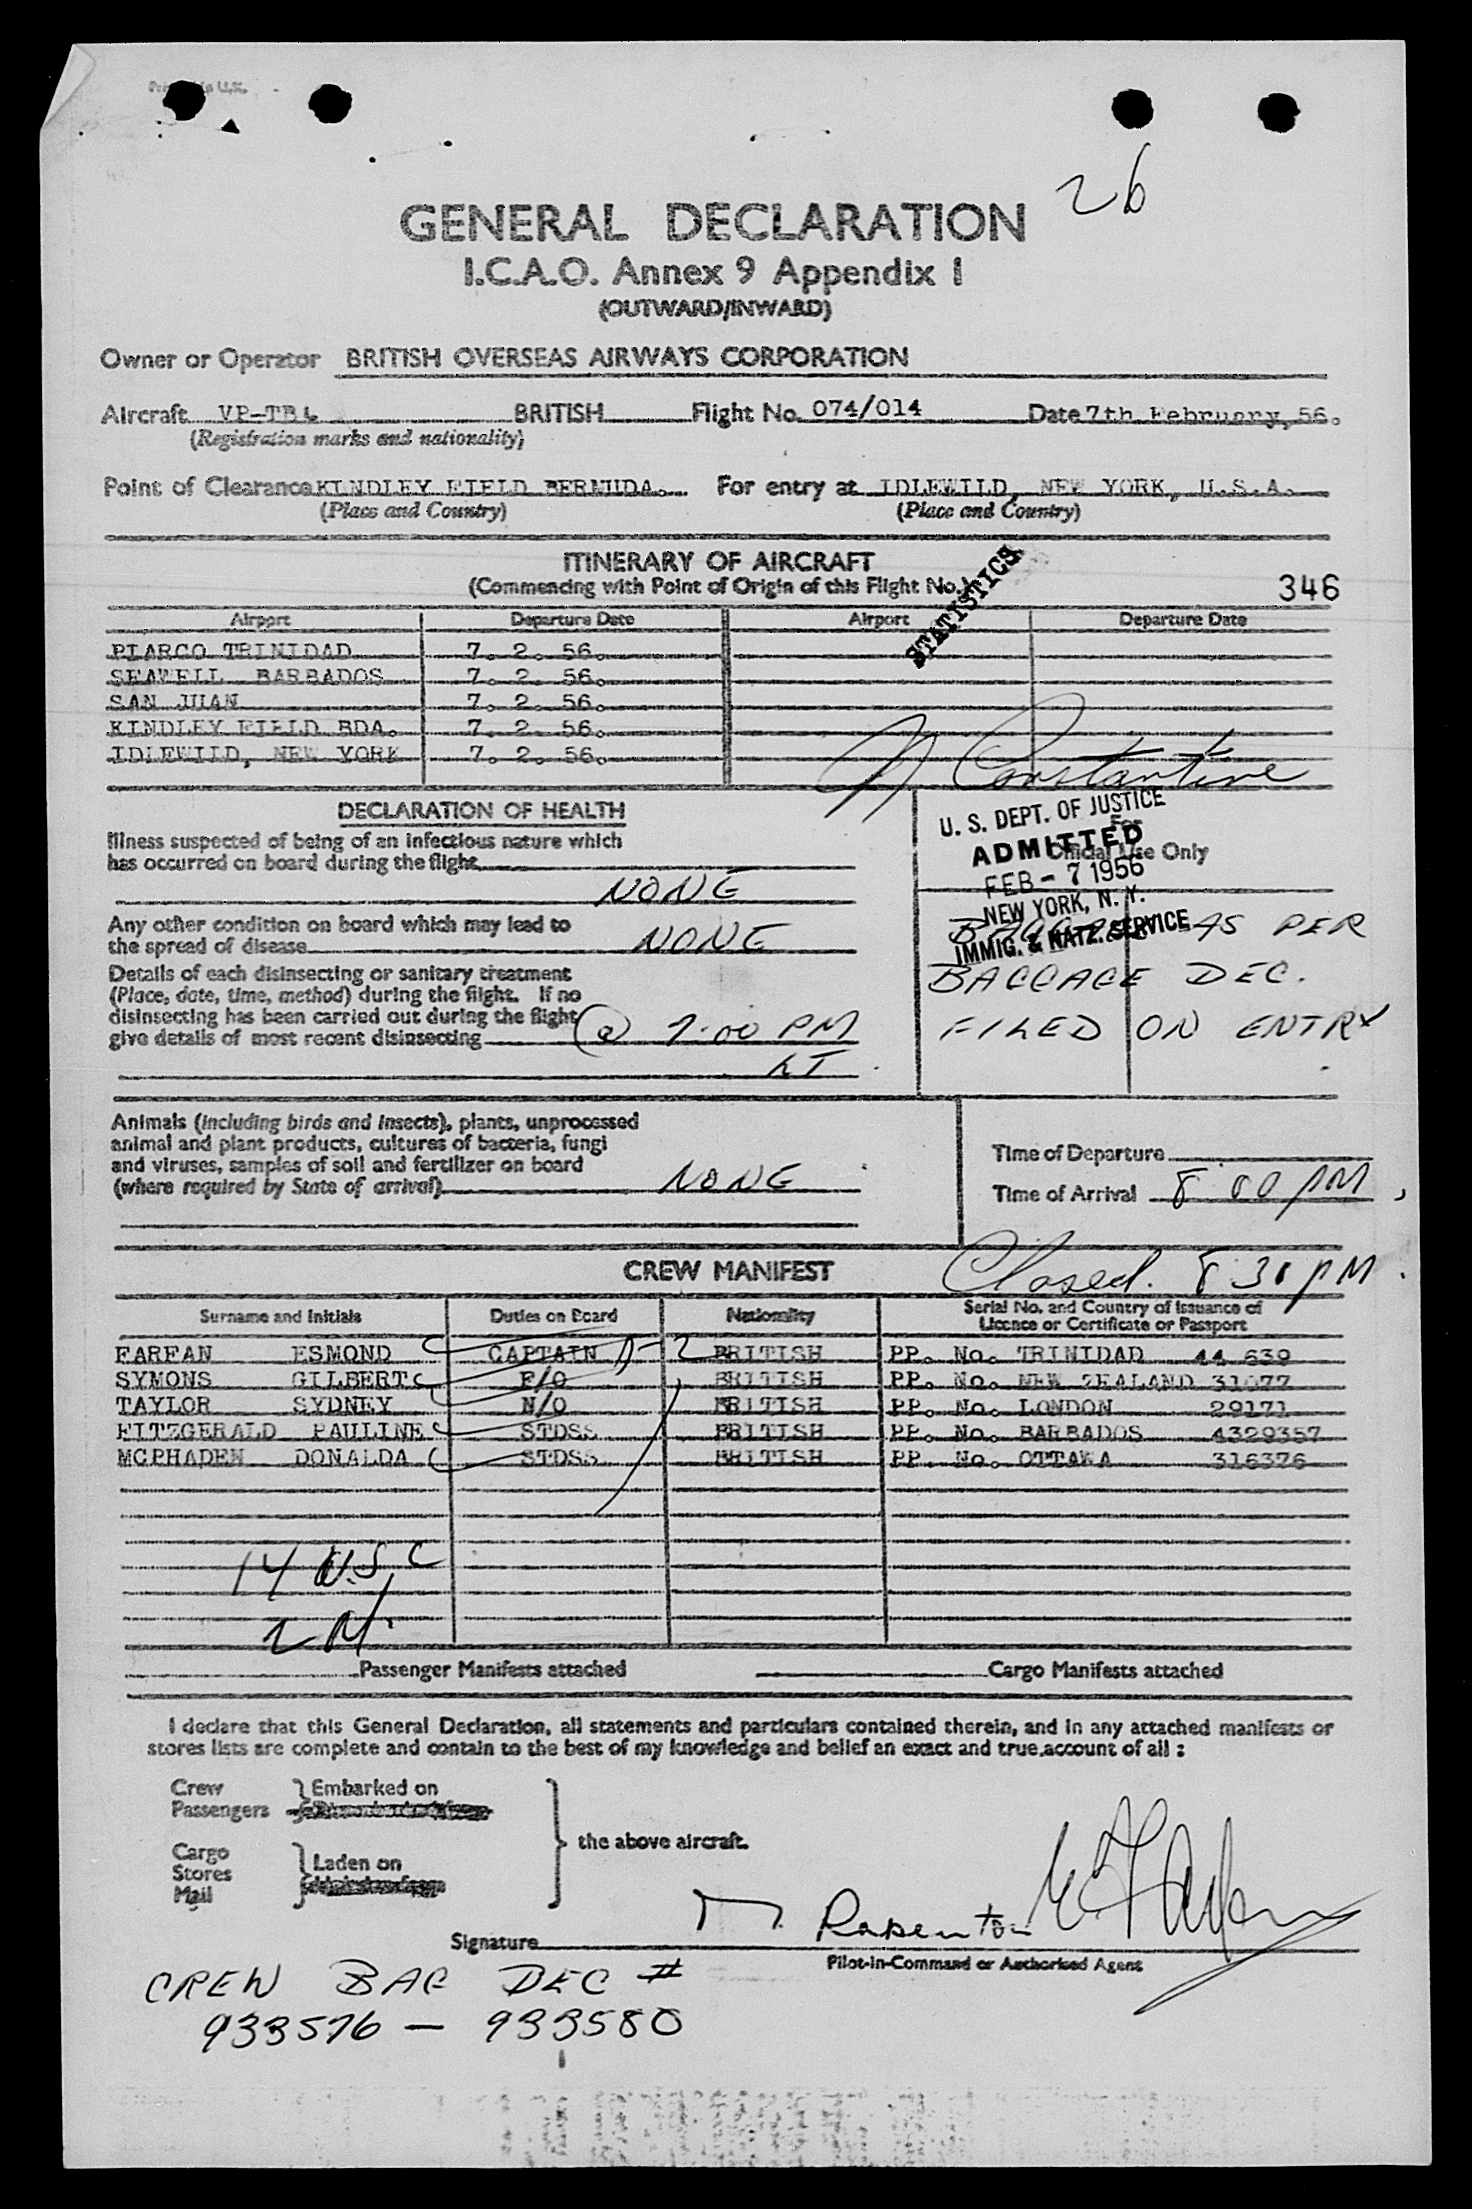 26
GENERAL DECLARATION
I.C.A.O. Annex 9 Appendix I
(OUTWARD/INWARD)
Owner or Operator BRITISH OVERSEAS AIRWAYS CORPORATION
Aircraft VP-TBL BRITISH Flight No. 074/014 Date 7th February, 56.
(Registration marks and nationality)
Point of Clearance KINDLEY FIELD BERMUDA. For entry at IDLEWILD, NEW YORK, U.S.A.
(Place and Country) (Place and Country)
ITINERARY OF AIRCRAFT
(Commencing with Point of Origin of this Flight No.)
STATISTICS
346
Airport Departure Date Airport Departure Date
PIARCO TRINIDAD 7. 2. 56.
SEAWELL BARBADOS 7. 2. 56.
SAN JUAN 7. 2. 56.
KINDLEY FIELD BDA. 7. 2. 56.
IDLEWILD, NEW YORK 7. 2. 56.
N Constantine
DECLARATION OF HEALTH
Illness suspected of being of an infectious nature which
has occurred on board during the flight
NONE
Any other condition on board which may lead to
the spread of disease NONE
Details of each disinsecting or sanitary treatment
(Place, date, time, method) during the flight. If no
disinsecting has been carried out during the flight
give details of most recent disinsecting @ 7:00 PM
LT
For
Official Use Only
U. S. DEPT. OF JUSTICE
ADMITTED
FEB - 7 1956
NEW YORK, N. Y.
IMMIG. & NATZ. SERVICE
AS PER
BAGGAGE DEC.
FILED ON ENTRY
Animals (including birds and insects), plants, unprocessed
animal and plant products, cultures of bacteria, fungi
and viruses, samples of soil and fertilizer on board
(where required by State of arrival) NONE
Time of Departure
Time of Arrival 8 00 PM
Closed. 8 30 PM.
CREW MANIFEST
Surname and Initials Duties on Board Nationality Serial No. and Country of Issuance of
Licence or Certificate or Passport
FARFAN ESMOND CAPTAIN BRITISH PP. No. TRINIDAD 44 639
SYMONS GILBERT F/O BRITISH PP. No. NEW ZEALAND 31077
TAYLOR SYDNEY N/O BRITISH PP. No. LONDON 29171
FITZGERALD PAULINE STDSS BRITISH PP. No. BARBADOS 4329357
MCPHADEN DONALDA STDSS BRITISH PP. No. OTTAWA 316376
14 U.S C
Passenger Manifests attached Cargo Manifests attached
I declare that this General Declaration, all statements and particulars contained therein, and in any attached manifests or
stores lists are complete and contain to the best of my knowledge and belief an exact and true account of all :
Crew Embarked on
Passengers
the above aircraft.
Cargo
Stores Laden on
Mail
Signature
Pilot-in-Command or Authorised Agent
CREW BAG DEC #
933576 - 933580